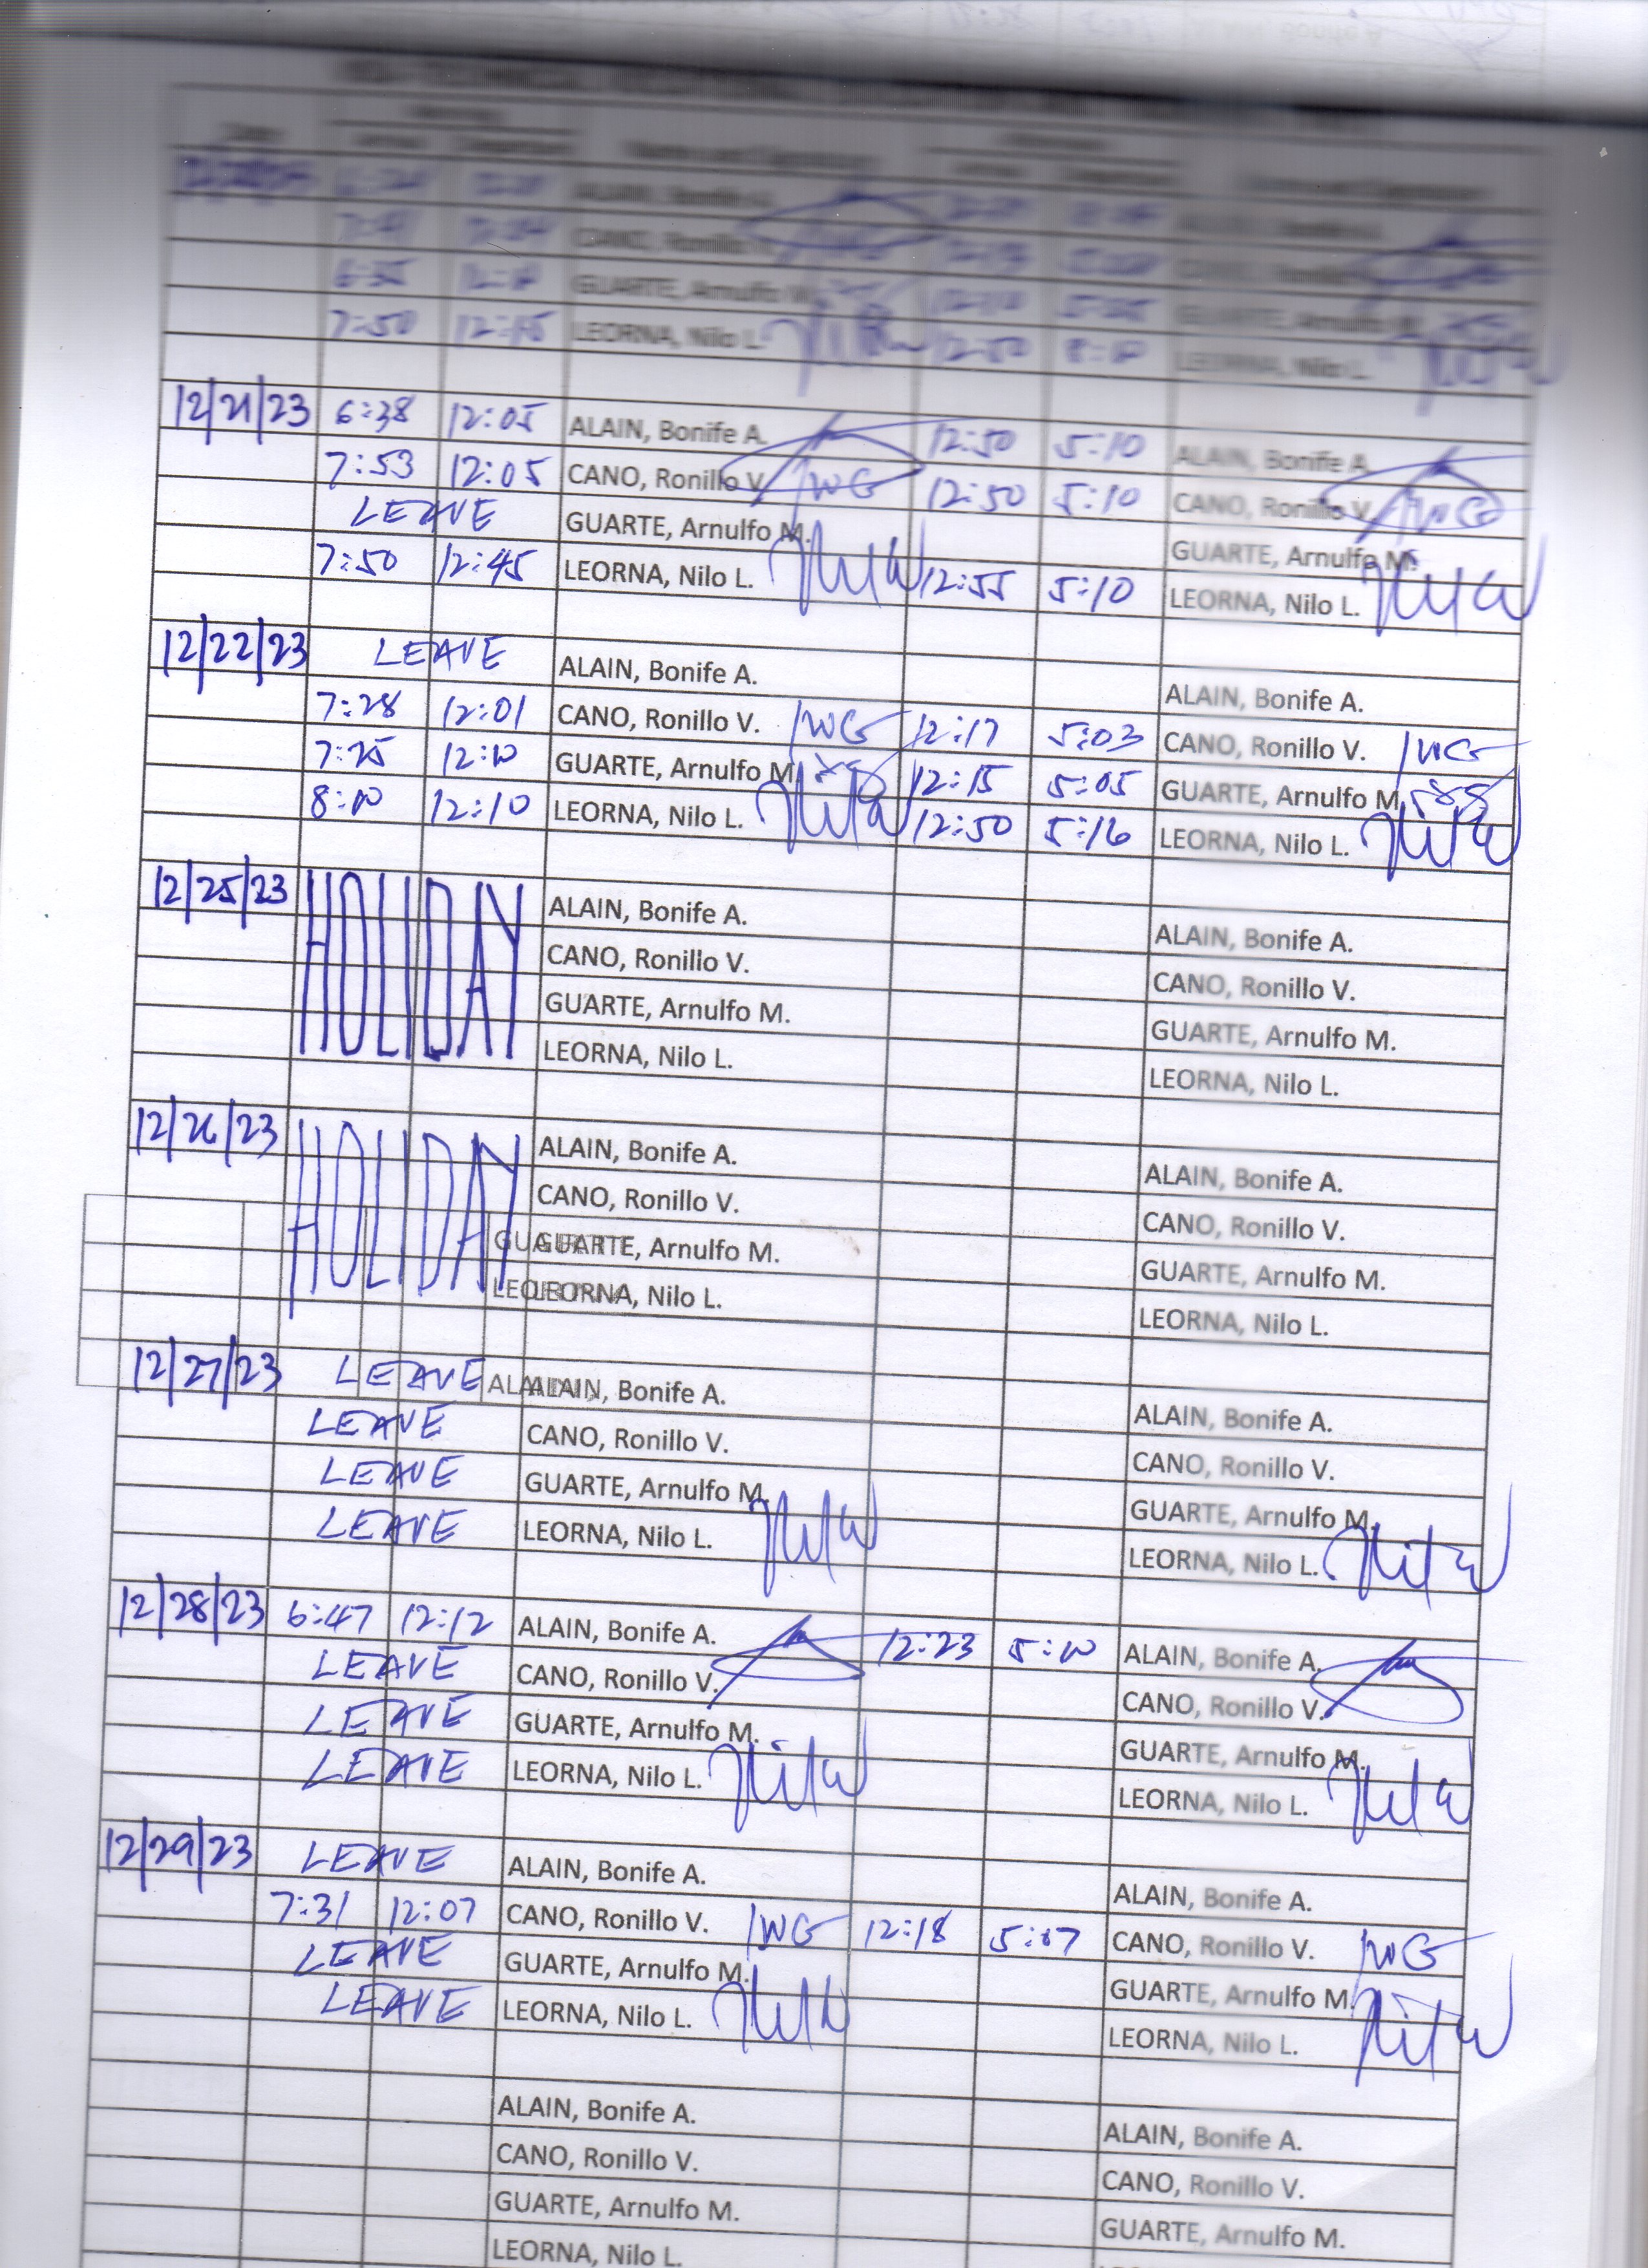 7:50 12:15 LEORNA, Nilo L. 12:50 LEORNA, Nilo L.
12/21/23 6:38 12:05 ALAIN, Bonife A. 12:50 5:10 ALAIN, Bonife A.
7:53 12:05 CANO, Ronillo V. 12:50 5:10 CANO, Ronillo V.
LEAVE GUARTE, Arnulfo M. GUARTE, Arnulfo M.
7:50 12:45 LEORNA, Nilo L. 12:55 5:10 LEORNA, Nilo L.
12/22/23 LEAVE ALAIN, Bonife A. ALAIN, Bonife A.
7:28 12:01 CANO, Ronillo V. 12:17 5:03 CANO, Ronillo V.
7:25 12:10 GUARTE, Arnulfo M. 12:15 5:05 GUARTE, Arnulfo M.
8:10 12:10 LEORNA, Nilo L. 12:50 5:16 LEORNA, Nilo L.
12/25/23 HOLIDAY ALAIN, Bonife A. ALAIN, Bonife A.
CANO, Ronillo V. CANO, Ronillo V.
GUARTE, Arnulfo M. GUARTE, Arnulfo M.
LEORNA, Nilo L. LEORNA, Nilo L.
12/26/23 HOLIDAY ALAIN, Bonife A. ALAIN, Bonife A.
CANO, Ronillo V. CANO, Ronillo V.
GUARTE, Arnulfo M. GUARTE, Arnulfo M.
LEORNA, Nilo L. LEORNA, Nilo L.
12/27/23 LEAVE ALAIN, Bonife A. ALAIN, Bonife A.
LEAVE CANO, Ronillo V. CANO, Ronillo V.
LEAVE GUARTE, Arnulfo M. GUARTE, Arnulfo M.
LEAVE LEORNA, Nilo L. LEORNA, Nilo L.
12/28/23 6:47 12:12 ALAIN, Bonife A. 12:23 5:10 ALAIN, Bonife A.
LEAVE CANO, Ronillo V. CANO, Ronillo V.
LEAVE GUARTE, Arnulfo M. GUARTE, Arnulfo M.
LEAVE LEORNA, Nilo L. LEORNA, Nilo L.
12/29/23 LEAVE ALAIN, Bonife A. ALAIN, Bonife A.
7:31 12:07 CANO, Ronillo V. 12:18 5:07 CANO, Ronillo V.
LEAVE GUARTE, Arnulfo M. GUARTE, Arnulfo M.
LEAVE LEORNA, Nilo L. LEORNA, Nilo L.
ALAIN, Bonife A. ALAIN, Bonife A.
CANO, Ronillo V. CANO, Ronillo V.
GUARTE, Arnulfo M. GUARTE, Arnulfo M.
LEORNA, Nilo L.